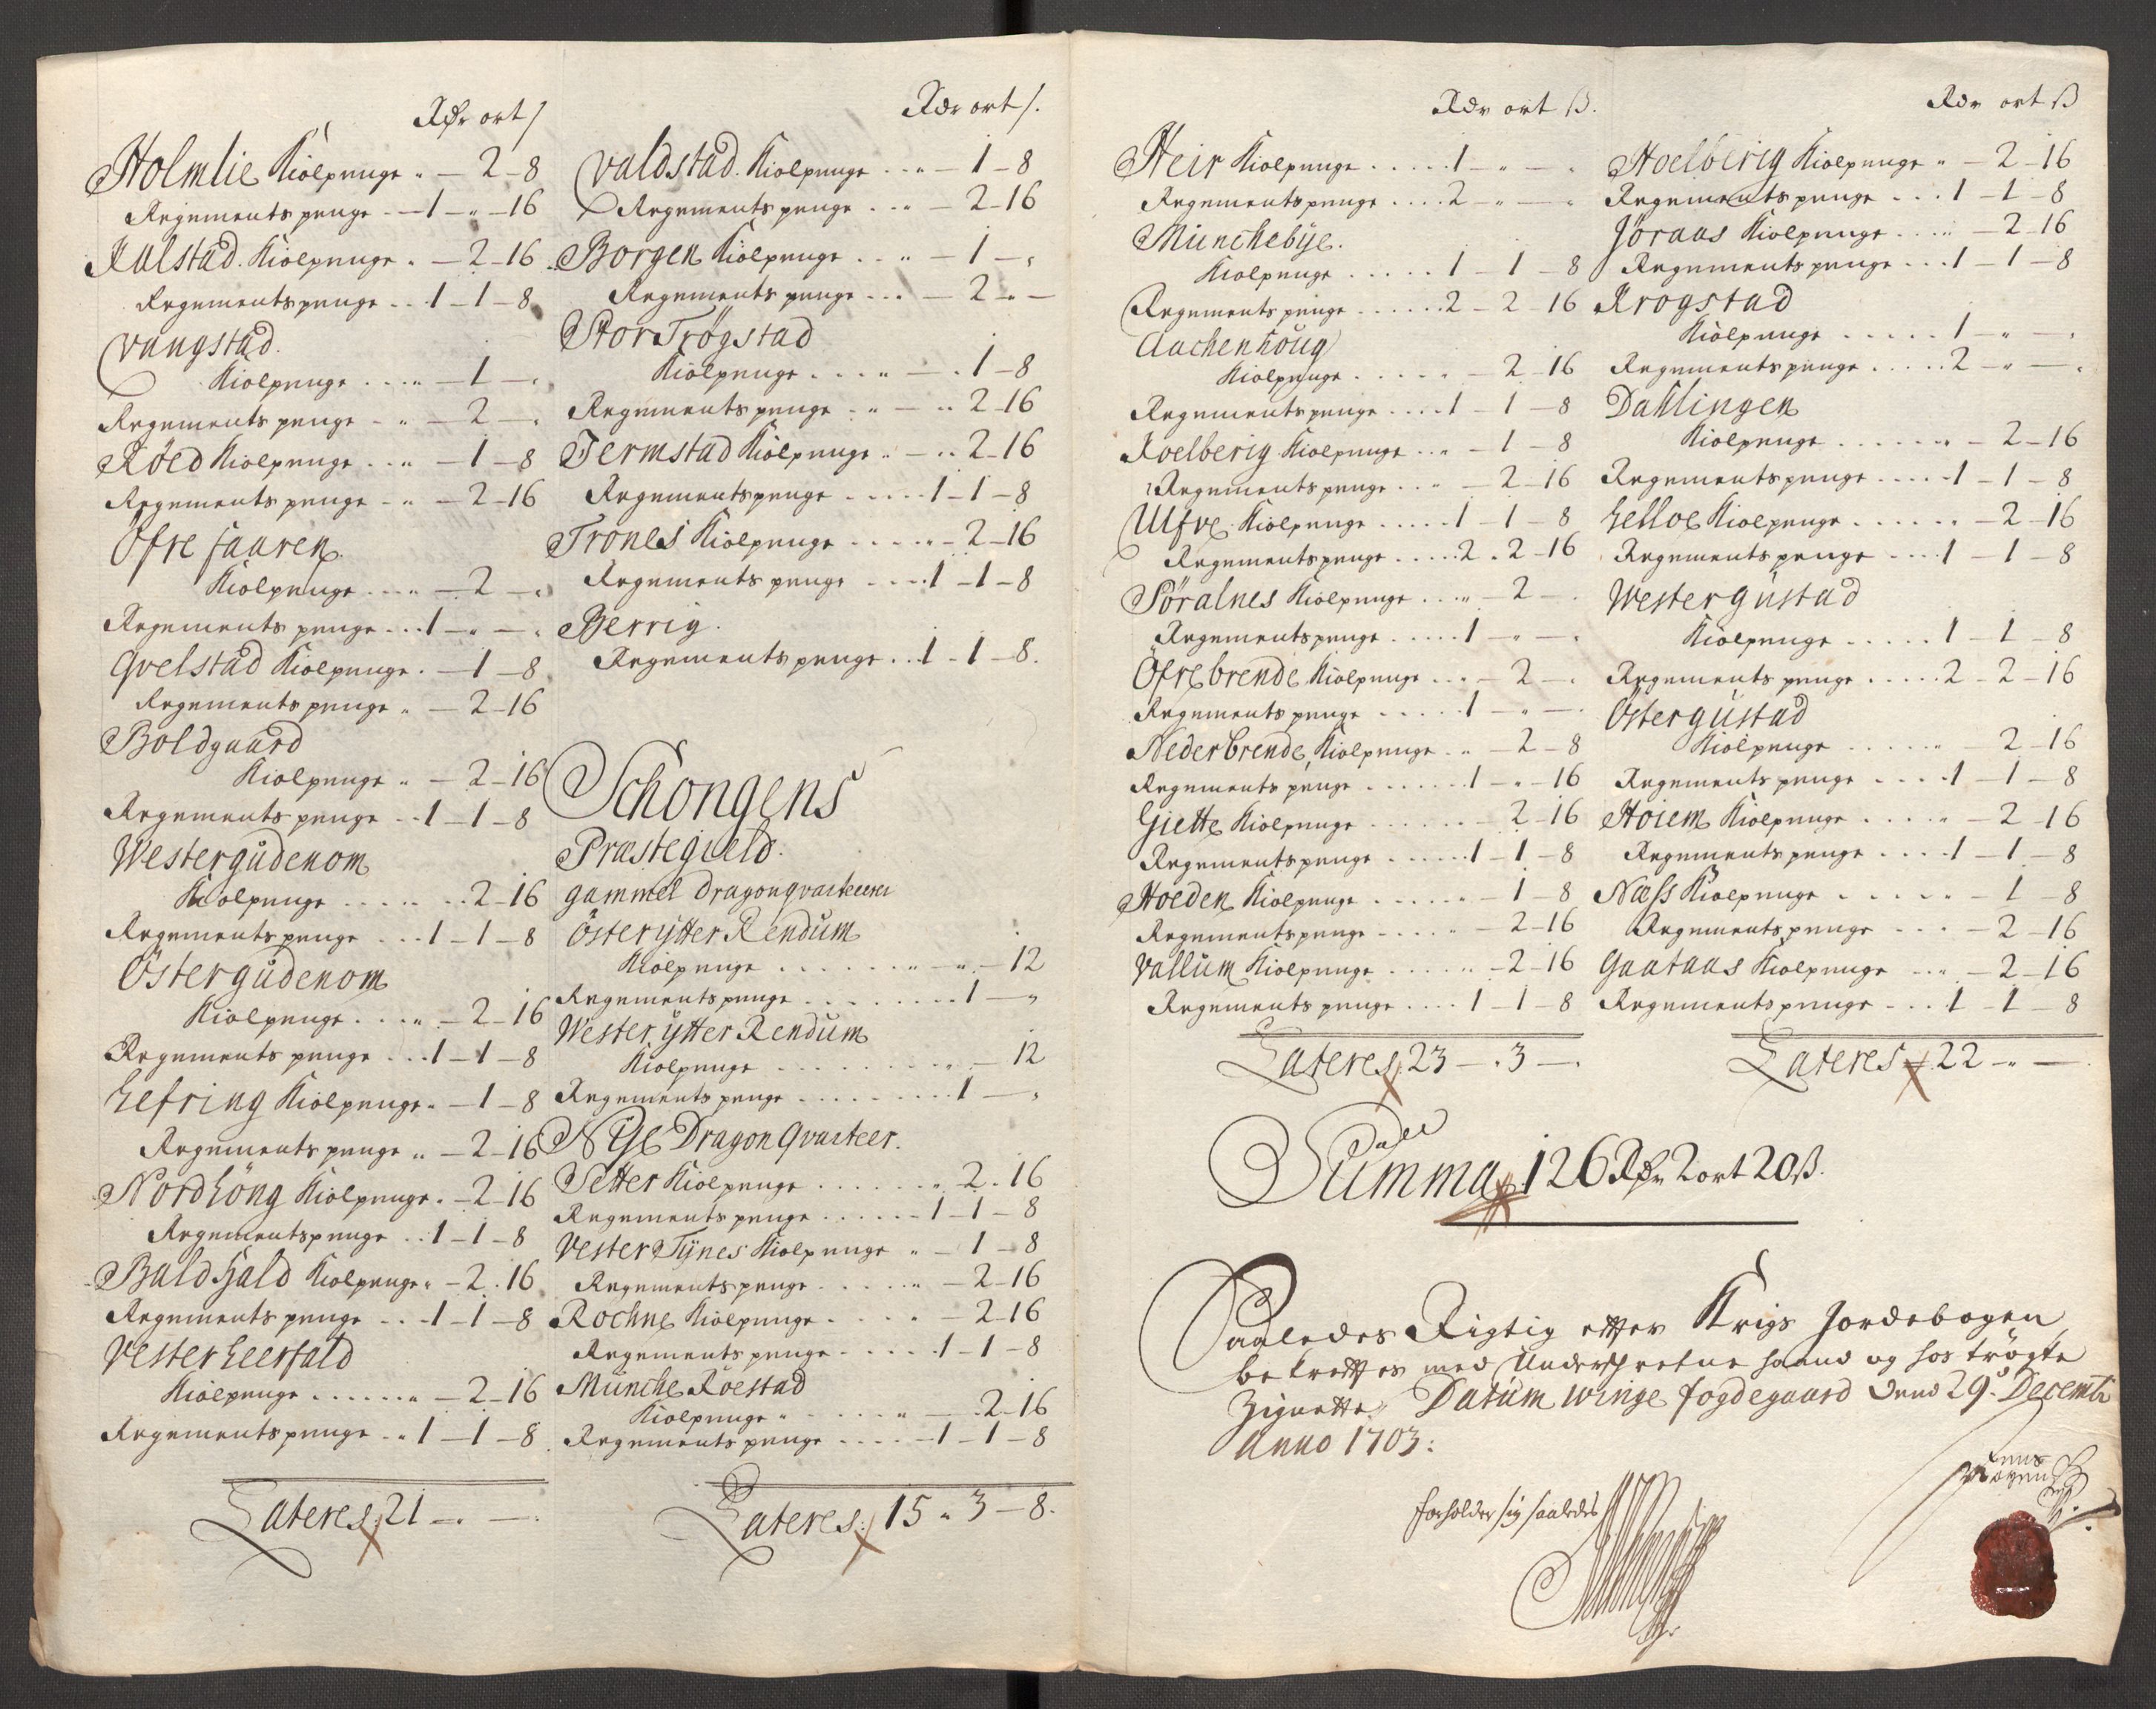 Rdr ort /
Holmlie Kiolpenge " — 2 – 8
Regementspenge – – 1 – " – 16
Kalstad Kiolpenge " — 2 – 16
Regementspenge . . 1 – 1 – 8
Vangstad
Kiolpenge . . . " — 1 — "
Regements penge - " — 2 — "
Röed Kiolpenge . . " — 1 – 8
Regements penge - " — 2 – 16
Öfre faaren
Kiolpenge . . . " — 2 — "
Regements penge . . . 1 – " – "
Qvelstad Kiolpenge . — 1 – 8
Regements penge " — 2 – 16
Boldgaard
Kiolpenge " — 2 – 16
Regements penge . . 1 – 1 – 8
Westergudenom
Kiolpenge . . . . . . 2 – 16
Regements penge . . . 1 – 1 – 8
Östergudenom
Kiolpenge . . . " — 2 – 16
Regements penge . . . 1 – 1 – 8
Hefring Kiolpenge " — 1 – 8
Regements penge " — 2 – 16
Nordhöng Kiolpenge . — 2 – 16
Regementspenge . . 1 – 1 – 8
Baldhald Kiolpenge " – 2 . 16
Regements penge . . 1 – 1 – 8
Vester heerfald
Kiolpenge . . . . . " — 2 – 16
Regements penge . . 1 – 1 – 8
Lateres: 21 – " –
Rdr ort /.
Valdstad Kiolpenge . . " — 1 – 8
Regements penge . . " — 2 – 16
Borgen Kiolpenge . . " — 1 — "
Regements penge . . . — 2 " –
Stor Trøgstad
Kiolpenge . . . . " — . 1 – 8
Regements penge . " — . . 2 – 16
Termstad Kiolpenge " — . . 2 – 16
Regements penge . . . . . 1 – 1 – 8
Trones Kiolpenge . . . . " – 2 – 16
Regements penge . . . . 1 – 1 – 8
Berrig
Regements penge . . . 1 – 1 – 8.
Schongens
Præstegield.
gammel Dragonqvarteerer
Öster ytter Rendum
Kiolpenge . . . . . . . " – " – 12
Regements penge . . . . . . . . . 1 — "
Wester ytter Rendum
Kiolpenge . . . . . . . . . . " – 12
Regements penge . . . . . . . . . 1 — "
Nye Dragon Qvarteer.
Setter Kiolpenge . . . . . . . " 2 . 16
Regements penge . . . . . . 1 – 1 – 8
Vester Tynes Kiolpenge " — 1 – 8
Regements penge . . . . . " — 2 – 16
Rochne Kiolpenge . . . . " — 2 – 16
Regements penge . . . . . 1 – 1 – 8
Munche Roestad
Kiolpenge " . . . . . " — . 2 – 16
Regements penge . . . . . 1 – 1 – 8
Lateres: 15 " 3 – 8.
Rdr ort ß.
Heir Kiolpenge . . . . . 1 – " – "
Regements penge . . . . 2 – " – "
Munchebye.
Kiolpenge . . . . . 1 – 1 – 8
Regements penge . . . . . . 2 – 2 – 16
Aachenhoug
Kiolpenge . . . . . " – 2 – 16
Regements penge . . . . 1 – 1 – 8
Koelberig Kiolpenge . . " — 1 – 8
Regements penge . . " — 2 – 16
Ulfve Kiolpenge . . . . . 1 – 1 – 8
Regements penge . . . . . 2 . 2 – 16
Söralnes Kiolpenge . . . " — 2 — "
Regements penge . . . . . 1 – " – "
Öfre brende Kiolpenge . . . – 2 — "
Regements penge . . . . . 1 – " – "
Neder brende Kiolpenge . " — 2 – 8
Regements penge . . . . . . . 1 – " – 16
Giette Kiolpenge . . . . . . – 2 – 16
Regements penge . . . . . . 1 – 1 – 8
Hoeden Kiolpenge . . . . . . " – 1 – 8
Regements penge . . . . . " – 2 – 16
Vallum Kiolpenge . . . . . " – 2 – 16
Regements penge . . . . 1 – 1 – 8
Lateres: 23 – " 3 – "
Rdr ort ß
Hoelberig Kiolpenge " — 2 – 16
Regements penge . . . 1 – 1 – 8
Joraas Kiolpenge . . . " — 2 16
Regements penge . . . 1 – 1 – 8
Krogstad
Kiolpenge . . . . . 1 – " – "
Regements penge . . . . . 2 – " – "
Dahlingen
Kiolpenge . . . . . . " – 2 – 16
Regements penge . . . . . 1 – 1 – 8
Helloe Kiolpenge . . . . . " – 2 – 16
Regements penge . . . . 1 – 1 – 8
Westergustad
Kiolpenge . . . . . 1 – 1 – 8
Regements penge . . . . . 2 – 2 – 16
Östergustad
Kiolpenge . . . . . " 2 – 16
Regements penge . . . . 1 – 1 – 8
Hoiem Kiolpenge . . . . " – 2 – 16
Regements penge . . . . 1 – 1 – 8
Næss Kiolpenge . . . . . " – 1 – 8
Regements penge . . . – 2 – 16
Gaataas Kiolpenge . . " – 2 – 16
Regements penge . . . 1 – 1 – 8
Lateres 22 – " –
Summa 126 Rdr 2 ort 20 ß.
Saaledes Rigtig effter Krigs Jordebogen
bekrefftes med Underschrefne haand og hos trögte
Zignette, Datum Winge fogdegaard dend 29. Decembr
Anno 1703:
forholder sig saaledes